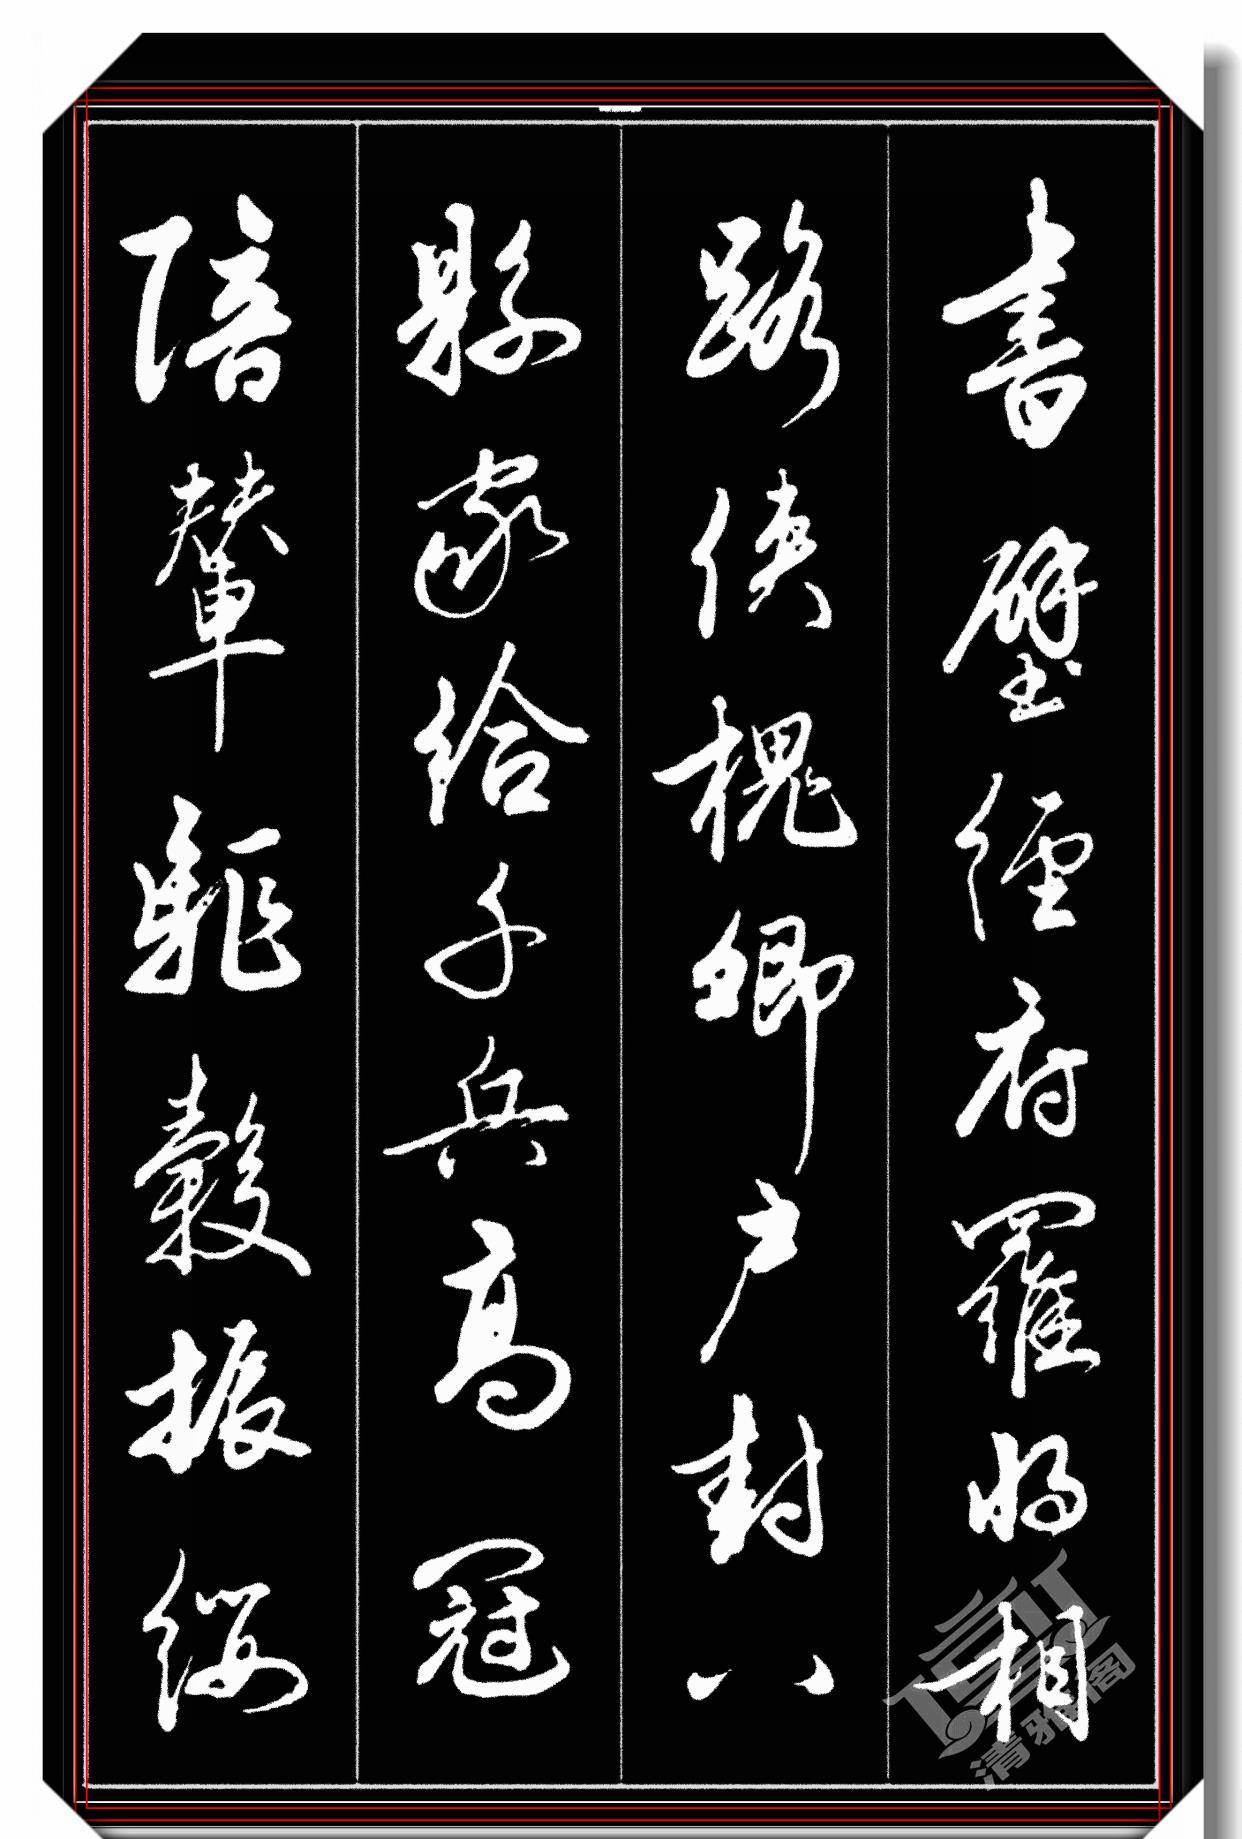 書壁經府羅將相
路俠槐卿户封八
縣家給千兵高冠
陪輦驅轂振纓
清雅阁